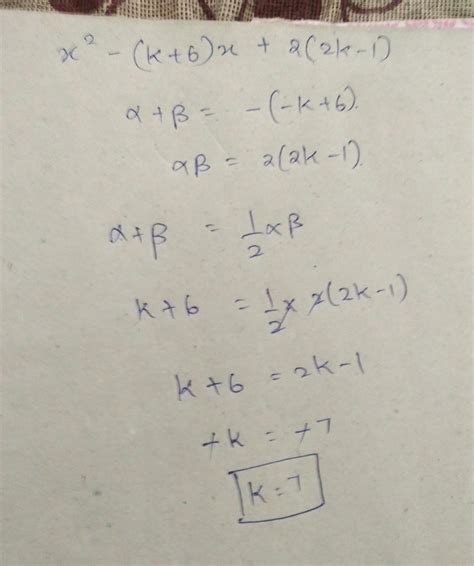 x² - (k+6)x + 2(2k-1)
α+β = -(-k+6).
αβ = 2(2k-1).
α+β = 1/2 αβ
k+6 = 1/2 x 2(2k-1)
k+6 = 2k-1
+k = +7
k=7